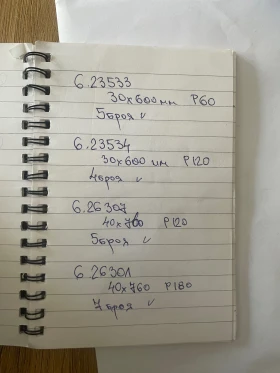 6.23533
30x600мм P60
5 броя ✓
6.23534
30x600 мм P120
4 броя ✓
6.26307
40x760 P120
5 броя ✓
6.26301
40x760 P180
7 броя ✓